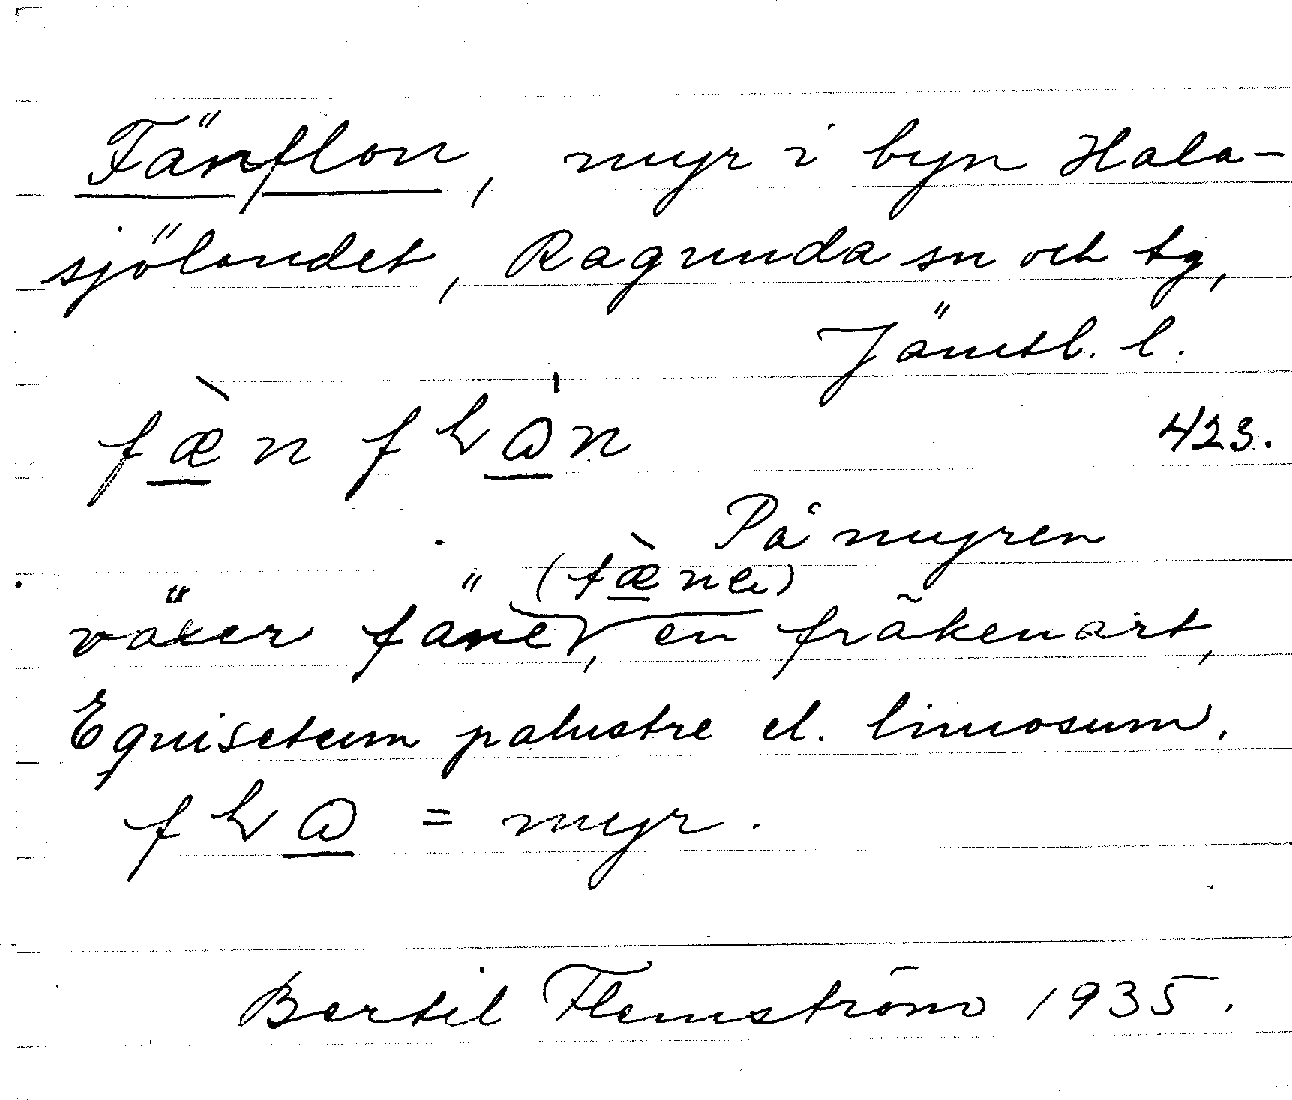 Fänflon, myr i byn Hala-
sjölandet, Ragunda sn och tg,
Jämtl. l.
fæ̀n flɷ̍n 423.
På myren
(fæ̀ne)
växer fäne, en fräkenart,
Equisetum palustre el. limosum.
flɷ = myr.
Bertil Flemström 1935.